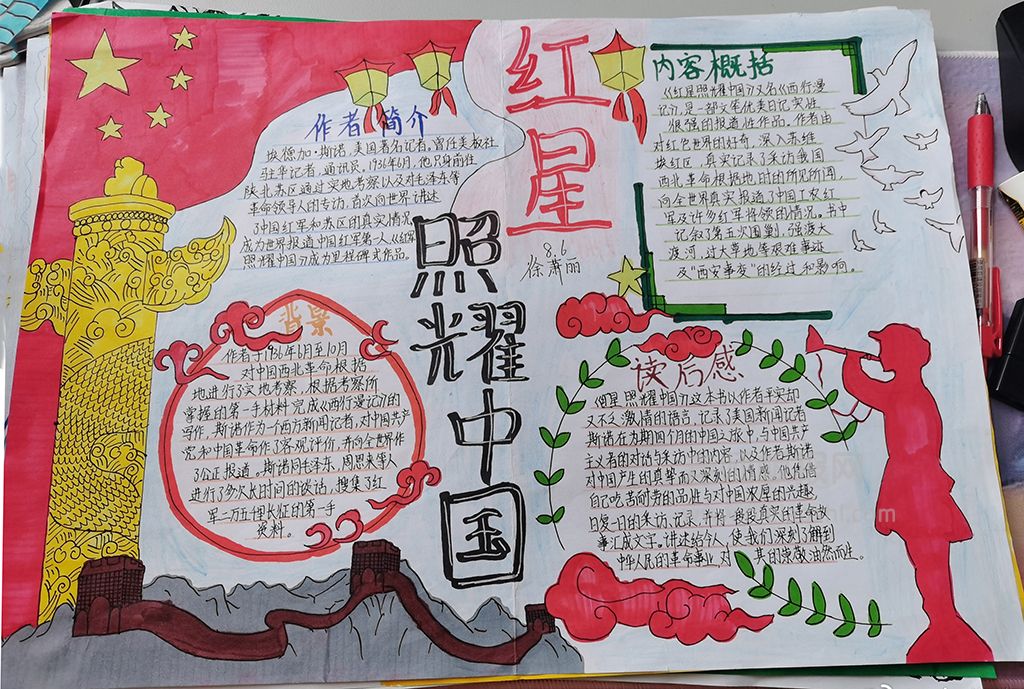 红星
照耀中国
8.6
徐萧丽
作者简介
埃德加·斯诺，美国著名记者，曾任美报社
驻华记者、通讯员，1936年6月，他只身前往
陕北苏区通过实地考察以及对毛泽东等
革命领导人的专访，首次向世界讲述
了中国红军和苏区的真实情况
成为世界报道中国红军第一人。《红星
照耀中国》成为里程碑式作品。
背景
作者于1936年6月至10月
对中国西北革命根据
地进行了实地考察，根据考察所
掌握的第一手材料完成《西行漫记》的
写作，斯诺作为一个西方新闻记者，对中国共产
党和中国革命作了客观评价，并向全世界作
了公正报道。斯诺同毛泽东、周恩来等人
进行了多次长时间的谈话，搜集了红
军二万五千里长征的第一手
资料。
内容概括
《红星照耀中国》又名《西行漫
记》，是一部文笔优美日记实性
很强的报道性作品，作者由
对红色世界的好奇，深入苏维
埃红区，真实记录了采访我国
西北革命根据地时的所见所闻，
向全世界真实报道了中国工农红
军及许多红军将领的情况。书中
记叙了第五次围剿，强渡大
渡河，过大草地等艰难事迹
及"西安事变"的经过和影响。
读后感
《红星照耀中国》这本书以作者平实却
又不乏激情的语言，记录了美国新闻记者
斯诺在为期四个月的中国之旅中，与中国共产
主义者的对话与采访中的内容，以及作者斯诺
对中国产生的真挚而又深刻的情感。他凭借
自己吃苦耐劳的品性与对中国浓厚的兴趣，
日复一日的采访、记录，并将一段段真实的革命故
事汇成文字。讲述给令人，使我们深刻了解到
中华人民的革命事业，对其的崇敬油然而生。